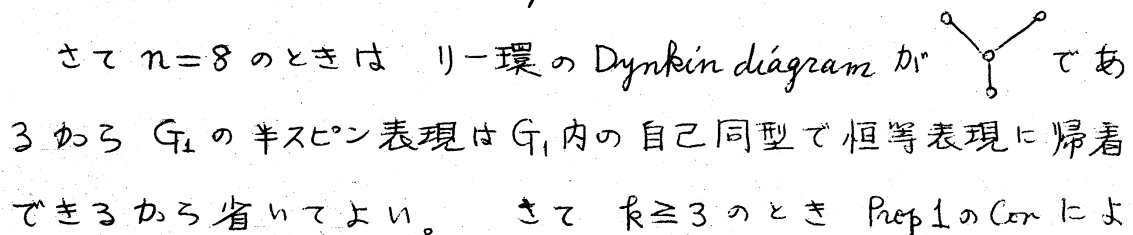 さて n=8 のときは リー環の Dynkin diagram が であ
るから G₁ の半スピン表現は G₁内の自己同型で恒等表現に帰着
できるから省いてよい。 さて k≧3 のとき Prop 1 の Cor によ